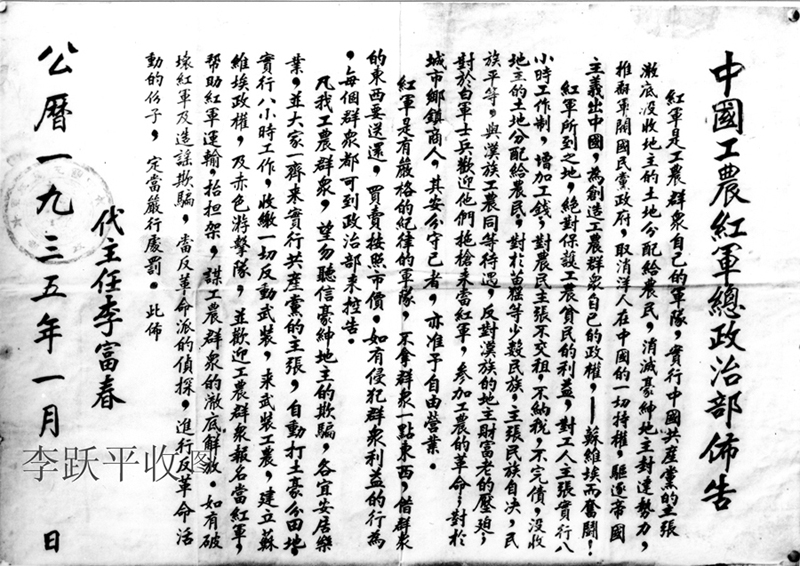 中國工農紅軍總政治部佈告
紅軍是工農群眾自己的軍隊，實行中國共產黨的主張
澈底沒收地主的土地分配給農民，消滅豪紳地主封建勢力，
推翻軍閥國民黨政府，取消洋人在中國的一切特權，驅逐帝國
主義出中國，為創造工農群眾自己的政權，——蘇維埃而奮鬥！
紅軍所到之地，絕對保護工農貧民的利益，對工人主張實行八
小時工作制，增加工錢，對農民主張不交租，不納稅，不完債，沒收
地主的土地分配給農民。對於苗猺等少數民族，主張民族自决，民
族平等，與漢族工農同等待遇，反對漢族的地主財富老的壓迫；
對於白軍士兵歡迎他們拖槍來當紅軍，參加工農的革命；對於
城市鄉鎮商人，其安分守己者，亦准予自由營業。
紅軍是有嚴格的紀律的軍隊，不拿群眾一點東西，借群眾
的東西要送還，買賣按照市價。如有侵犯群眾利益的行為
，每個群眾都可到政治部來控告。
凡我工農群眾，望勿聽信豪紳地主的欺騙，各宜安居樂
業，並大家一齊來實行共產黨的主張，自動打土豪分田地。
實行八小時工作，收繳一切反動武裝，来武裝工農，建立蘇
維埃政權，及赤色游擊隊，並歡迎工農群眾報名當紅軍，
帮助紅軍運輸，抬担架，謀工農群眾的澈底解放。如有破
壞紅軍及造謠欺騙，當反革命派的偵探，進行反革命活
動的份子，定當嚴行處罰。此佈
代主任李富春
公曆一九三五年一月 日
李跃平收图